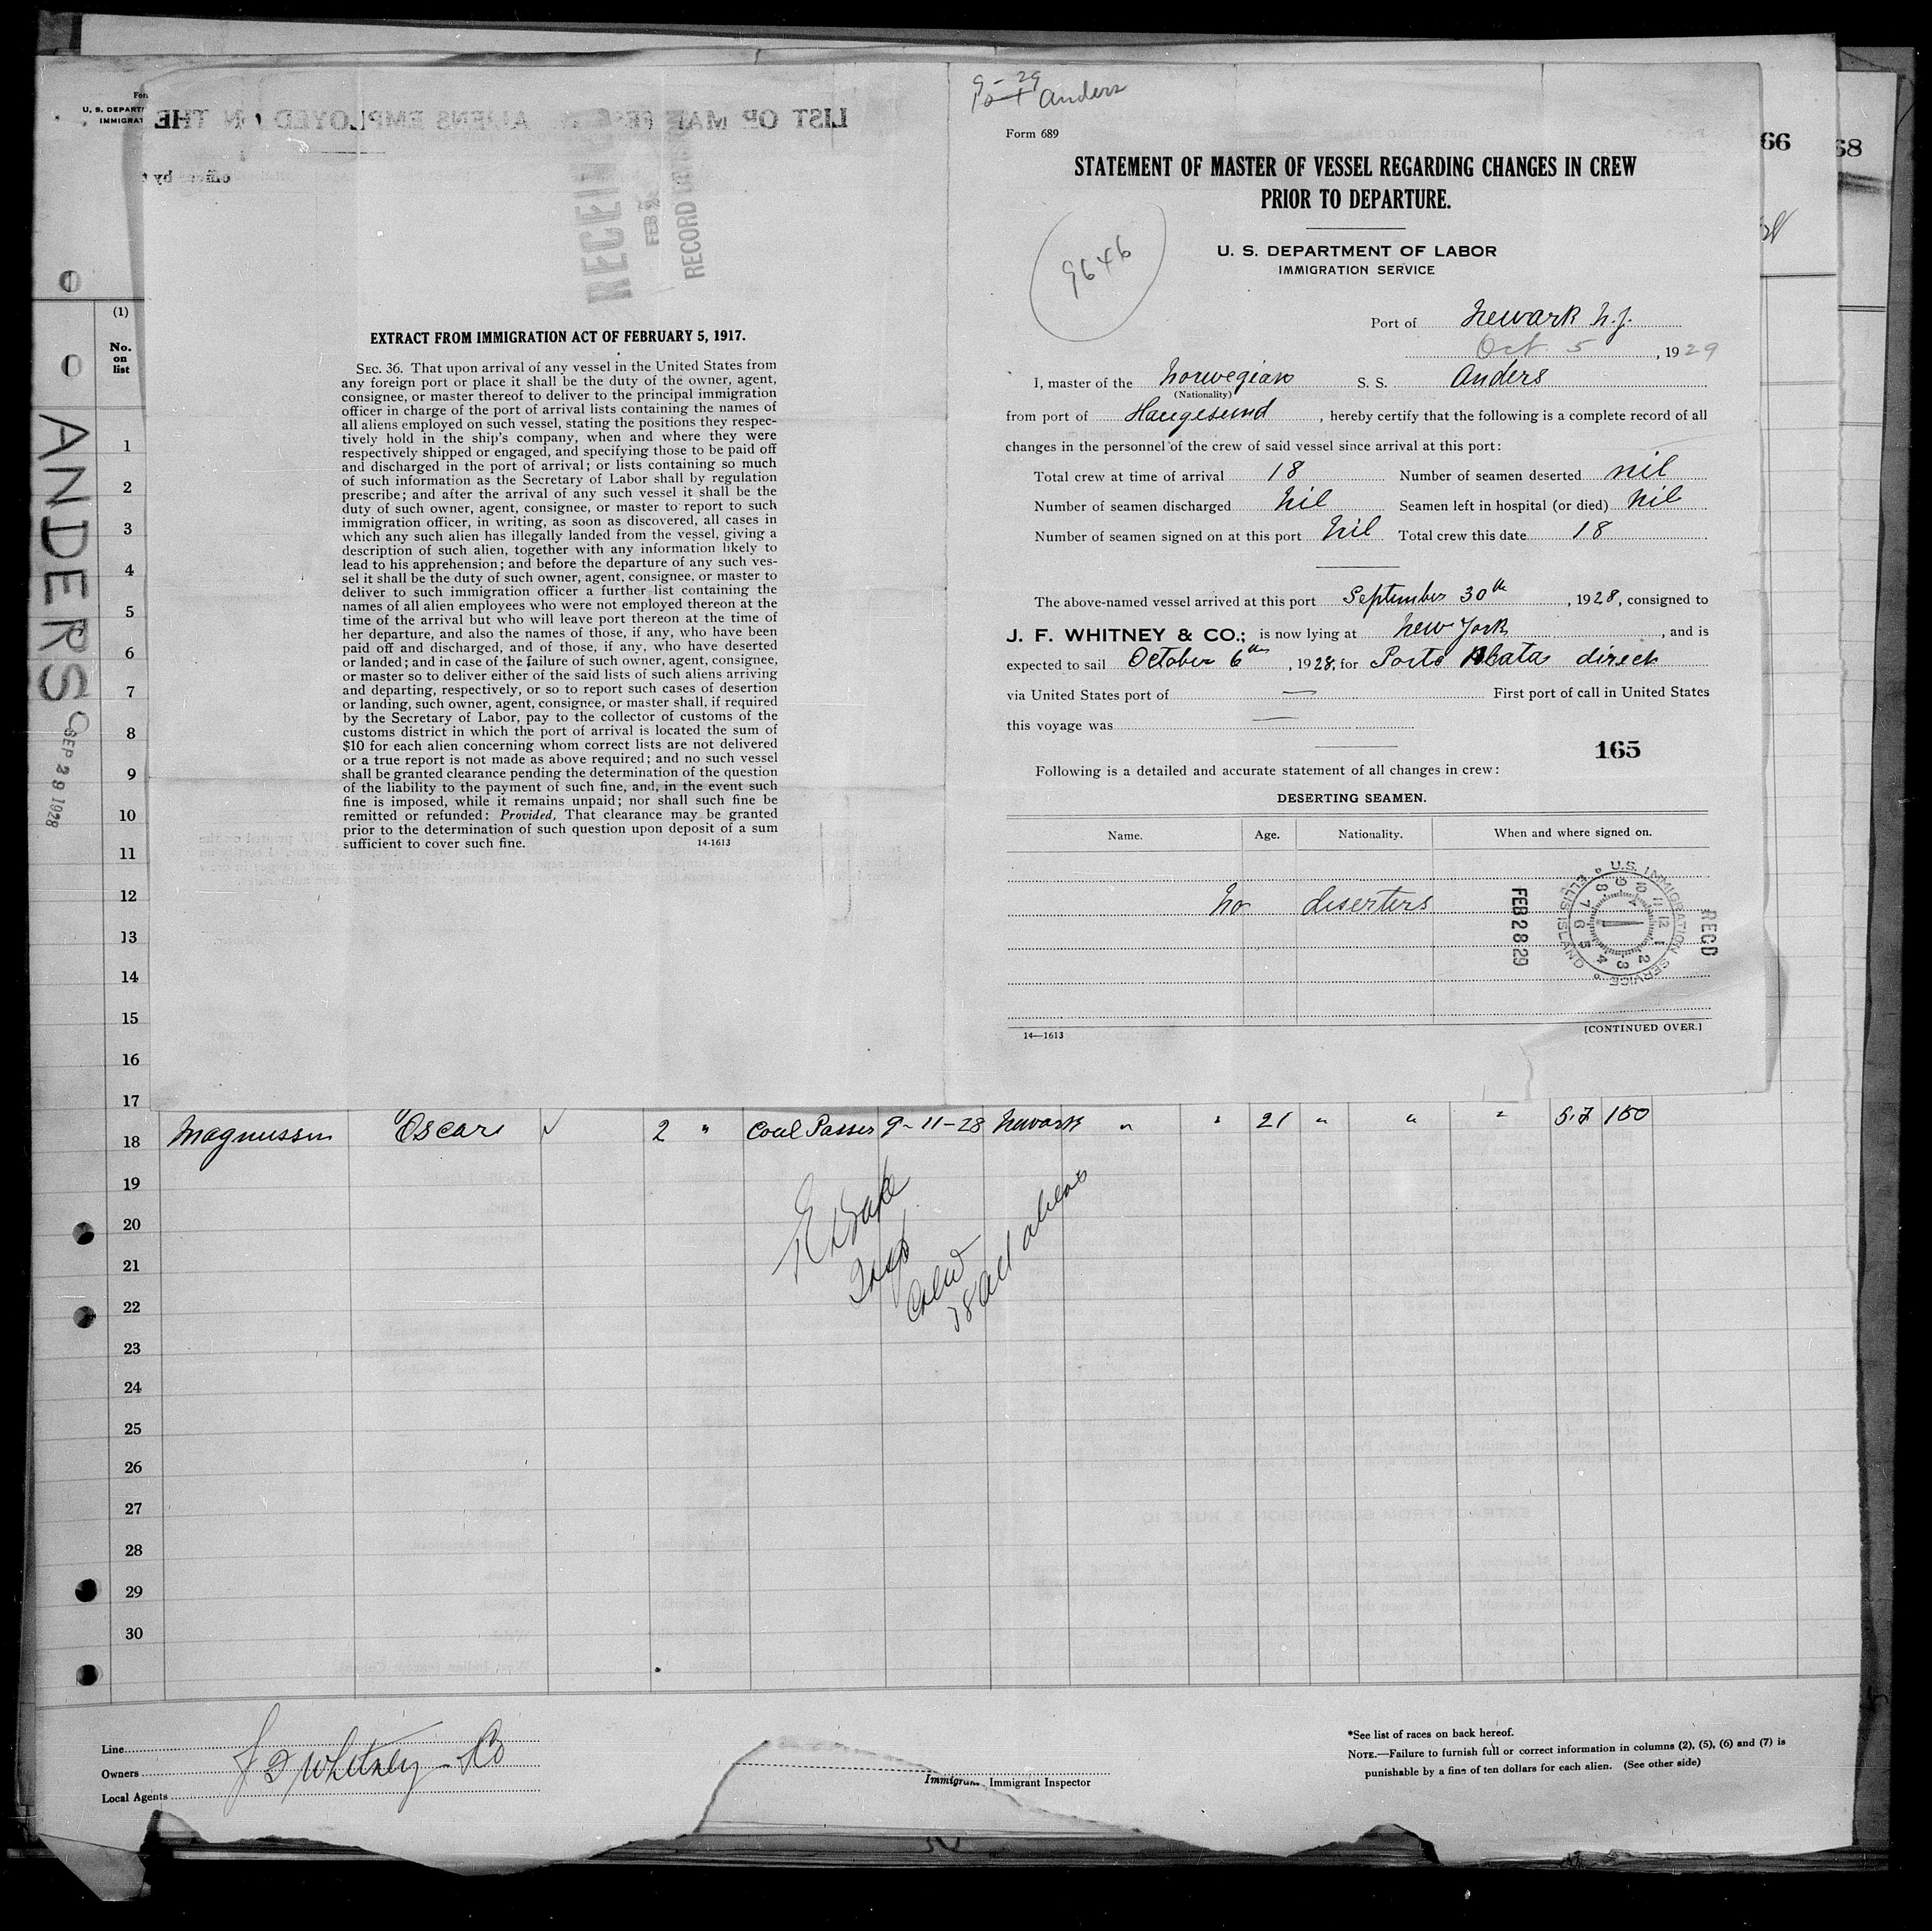 Form
U. S. DEPART
IMMIGRAT
LIST OF ALIENS EMPLOYED ON THE
RECEIVED
FEB 28
RECORD DIVISION
EXTRACT FROM IMMIGRATION ACT OF FEBRUARY 5, 1917.
SEC. 36. That upon arrival of any vessel in the United States from
any foreign port or place it shall be the duty of the owner, agent,
consignee, or master thereof to deliver to the principal immigration
officer in charge of the port of arrival lists containing the names of
all aliens employed on such vessel, stating the positions they respec-
tively hold in the ship's company, when and where they were
respectively shipped or engaged, and specifying those to be paid off
and discharged in the port of arrival; or lists containing so much
of such information as the Secretary of Labor shall by regulation
prescribe; and after the arrival of any such vessel it shall be the
duty of such owner, agent, consignee, or master to report to such
immigration officer, in writing, as soon as discovered, all cases in
which any such alien has illegally landed from the vessel, giving a
description of such alien, together with any information likely to
lead to his apprehension; and before the departure of any such ves-
sel it shall be the duty of such owner, agent, consignee, or master to
deliver to such immigration officer a further list containing the
names of all alien employees who were not employed thereon at the
time of the arrival but who will leave port thereon at the time of
her departure, and also the names of those, if any, who have been
paid off and discharged, and of those, if any, who have deserted
or landed; and in case of the failure of such owner, agent, consignee,
or master so to deliver either of the said lists of such aliens arriving
and departing, respectively, or so to report such cases of desertion
or landing, such owner, agent, consignee, or master shall, if required
by the Secretary of Labor, pay to the collector of customs of the
customs district in which the port of arrival is located the sum of
$10 for each alien concerning whom correct lists are not delivered
or a true report is not made as above required; and no such vessel
shall be granted clearance pending the determination of the question
of the liability to the payment of such fine, and, in the event such
fine is imposed, while it remains unpaid; nor shall such fine be
remitted or refunded: Provided, That clearance may be granted
prior to the determination of such question upon deposit of a sum
sufficient to cover such fine. 14-1613
Anders
Form 689
STATEMENT OF MASTER OF VESSEL REGARDING CHANGES IN CREW
PRIOR TO DEPARTURE.
9646
U. S. DEPARTMENT OF LABOR
IMMIGRATION SERVICE
Port of Newark N.J.
Oct 5, 1929
I, master of the Norwegian S. S. Anders
(Nationality)
from port of Haugesund, hereby certify that the following is a complete record of all
changes in the personnel of the crew of said vessel since arrival at this port:
Total crew at time of arrival 18 Number of seamen deserted nil
Number of seamen discharged Nil Seamen left in hospital (or died) Nil
Number of seamen signed on at this port Nil Total crew this date 18
The above-named vessel arrived at this port September 30th, 1928, consigned to
J. F. WHITNEY & CO.; is now lying at New York, and is
expected to sail October 6th, 1928, for Porto Plata direct
via United States port of — First port of call in United States
this voyage was —
165
Following is a detailed and accurate statement of all changes in crew:
DESERTING SEAMEN.
Name. Age. Nationality. When and where signed on.
No deserters
FEB 28 29
U.S. IMMIGRATION SERVICE
ELLIS ISLAND
RECD
14—1613
[CONTINUED OVER.]
66
68
ANDERS
SEP 29 1928
(1)
No.
on
list
1
2
3
4
5
6
7
8
9
10
11
12
13
14
15
16
17
18 Magnussen Oscar √ 2 " Coal Passer 9-11-28 Newark " " 21 " " " 5.7 150
19
20
21
22
23
24
25
26
27
28
29
30
Insp
Crew
18 all aliens
Line
Owners J F Whitney Co
Local Agents
Immigrant Inspector
*See list of races on back hereof.
NOTE.—Failure to furnish full or correct information in columns (2), (5), (6) and (7) is
punishable by a fine of ten dollars for each alien. (See other side)